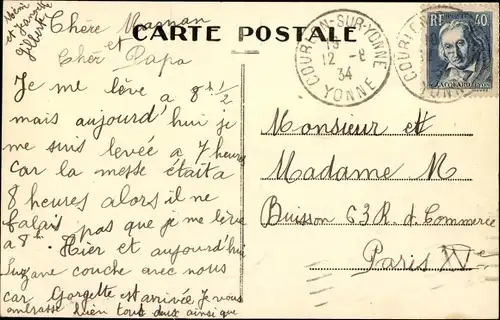 Rémi
et Janine
Gilbert
CARTE POSTALE
Chère Maman
et
Cher Papa
Je me lève a 8h 1/2
mais aujourd'hui je
me suis levée a 7 heures
car la messe était a
8 heures alors il ne
falais pas que je me lève
a 8h. Hier et aujourd'hui
Suzane couche avec nous
car Gorgette est arrivée. Je vous
ambrasse bien tout deux ainsi que
COURLON-SUR-YONNE
12-8
34
YONNE
COURLON
YONNE
RF 40
JACQUARD
Monsieur et
Madame M
Buisson 63 R. d. Commerce
Paris XVe